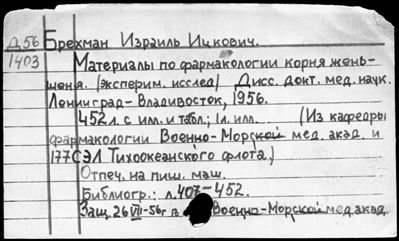 Д.56 Брехман Израиль Ицкович.
1403 Материалы по фармакологии корня жень-
шеня. (Эксперим. исслед) Дисс. докт. мед. наук.
Ленинград-Владивосток, 1956.
452 л. с илл. и табл.; 1 л. илл. (Из кафедры
фармакологии Военно-Морской мед. акад. и
177 СЭЛ Тихоокеанского флота.)
Отпеч. на пиш. маш.
Библиогр.: л. 407-452.
Защ. 26 VII-56г в Военно-Морской мед. акад.